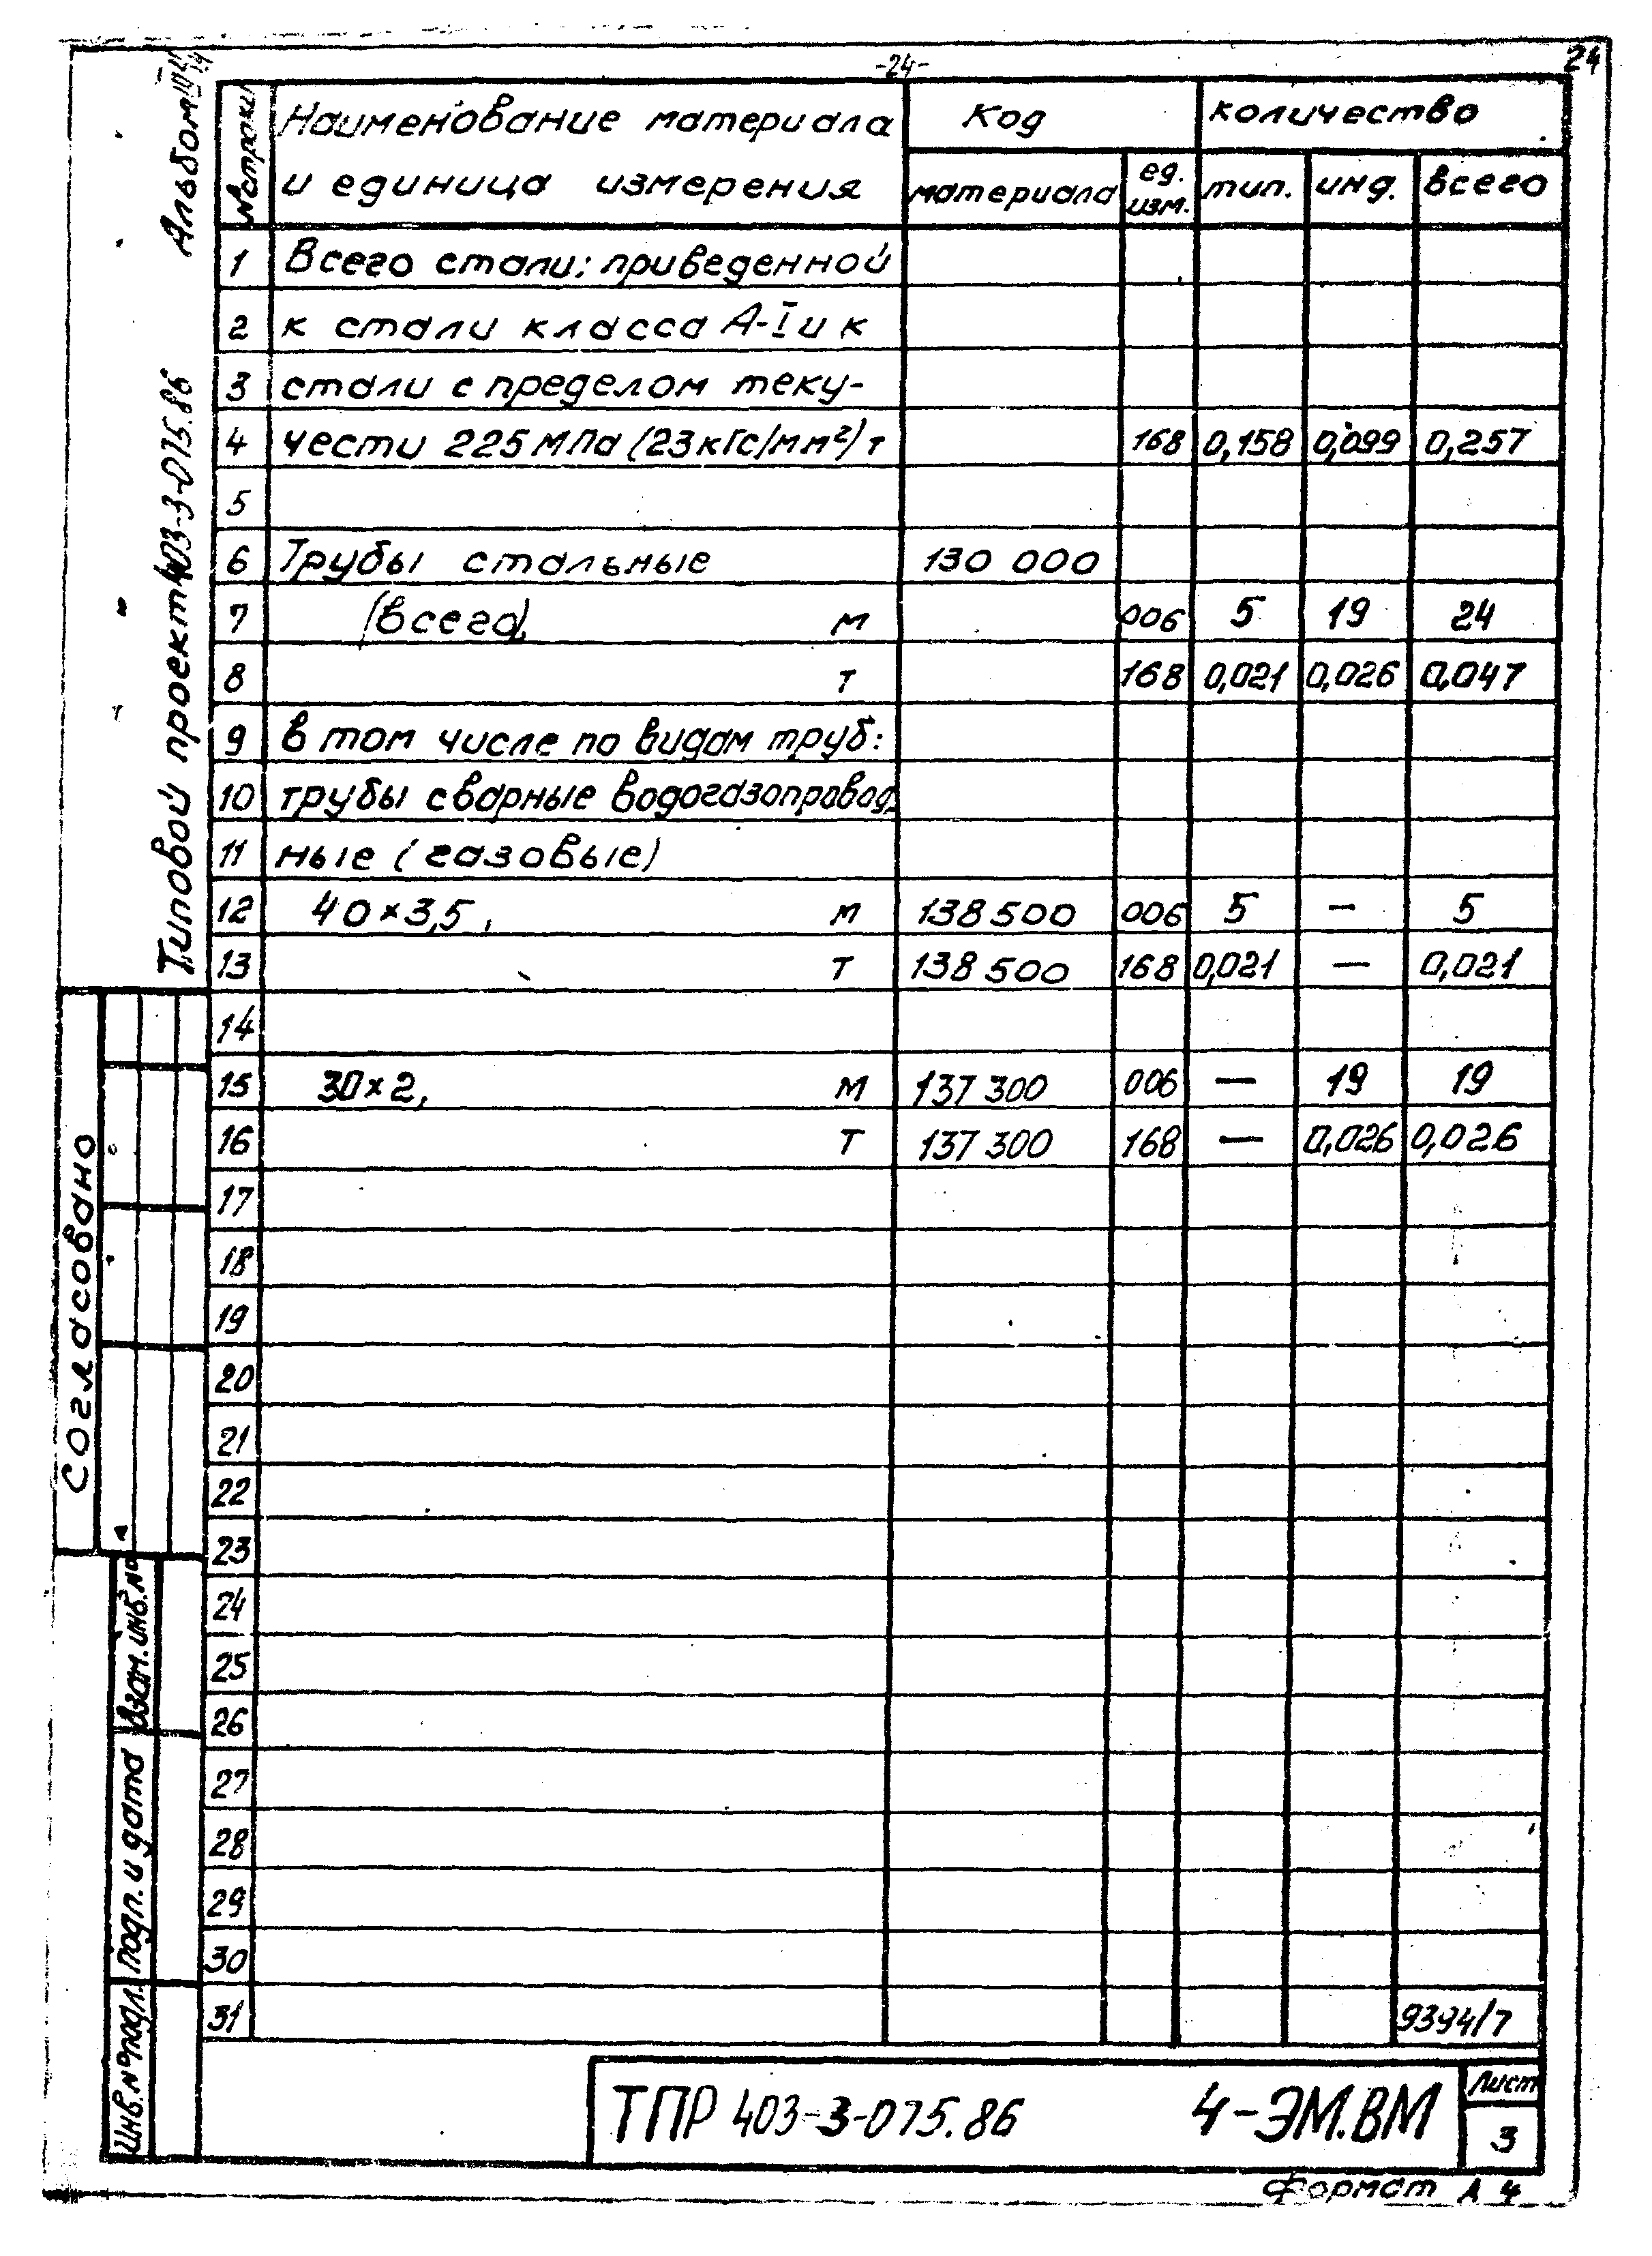 -24-
24
№ строки
Наименование материала
и единица измерения
Код
материала
ед.
изм.
количество
тип. инд. всего
1 Всего стали: приведенной
2 к стали класса А-I и к
3 стали с пределом теку-
4 чести 225 МПа (23кГс/мм²) т 168 0,158 0,099 0,257
5
6 Трубы стальные 130 000
7 (всего) м 006 5 19 24
8 т 168 0,021 0,026 0,047
9 в том числе по видам труб:
10 трубы сварные водогазопровод-
11 ные (газовые)
12 40×3,5, м 138 500 006 5 — 5
13 т 138 500 168 0,021 — 0,021
14
15 30×2, м 137 300 006 — 19 19
16 т 137 300 168 — 0,026 0,026
17
18
19
20
21
22
23
24
25
26
27
28
29
30
31 9394/7
ТПР 403-3-075.86 4-ЭМ.ВМ
Лист
3
Формат А4
Альбом
Типовой проект 403-3-075.86
Согласовано
Взам. инв. №
Подп. и дата
Инв. № подл.